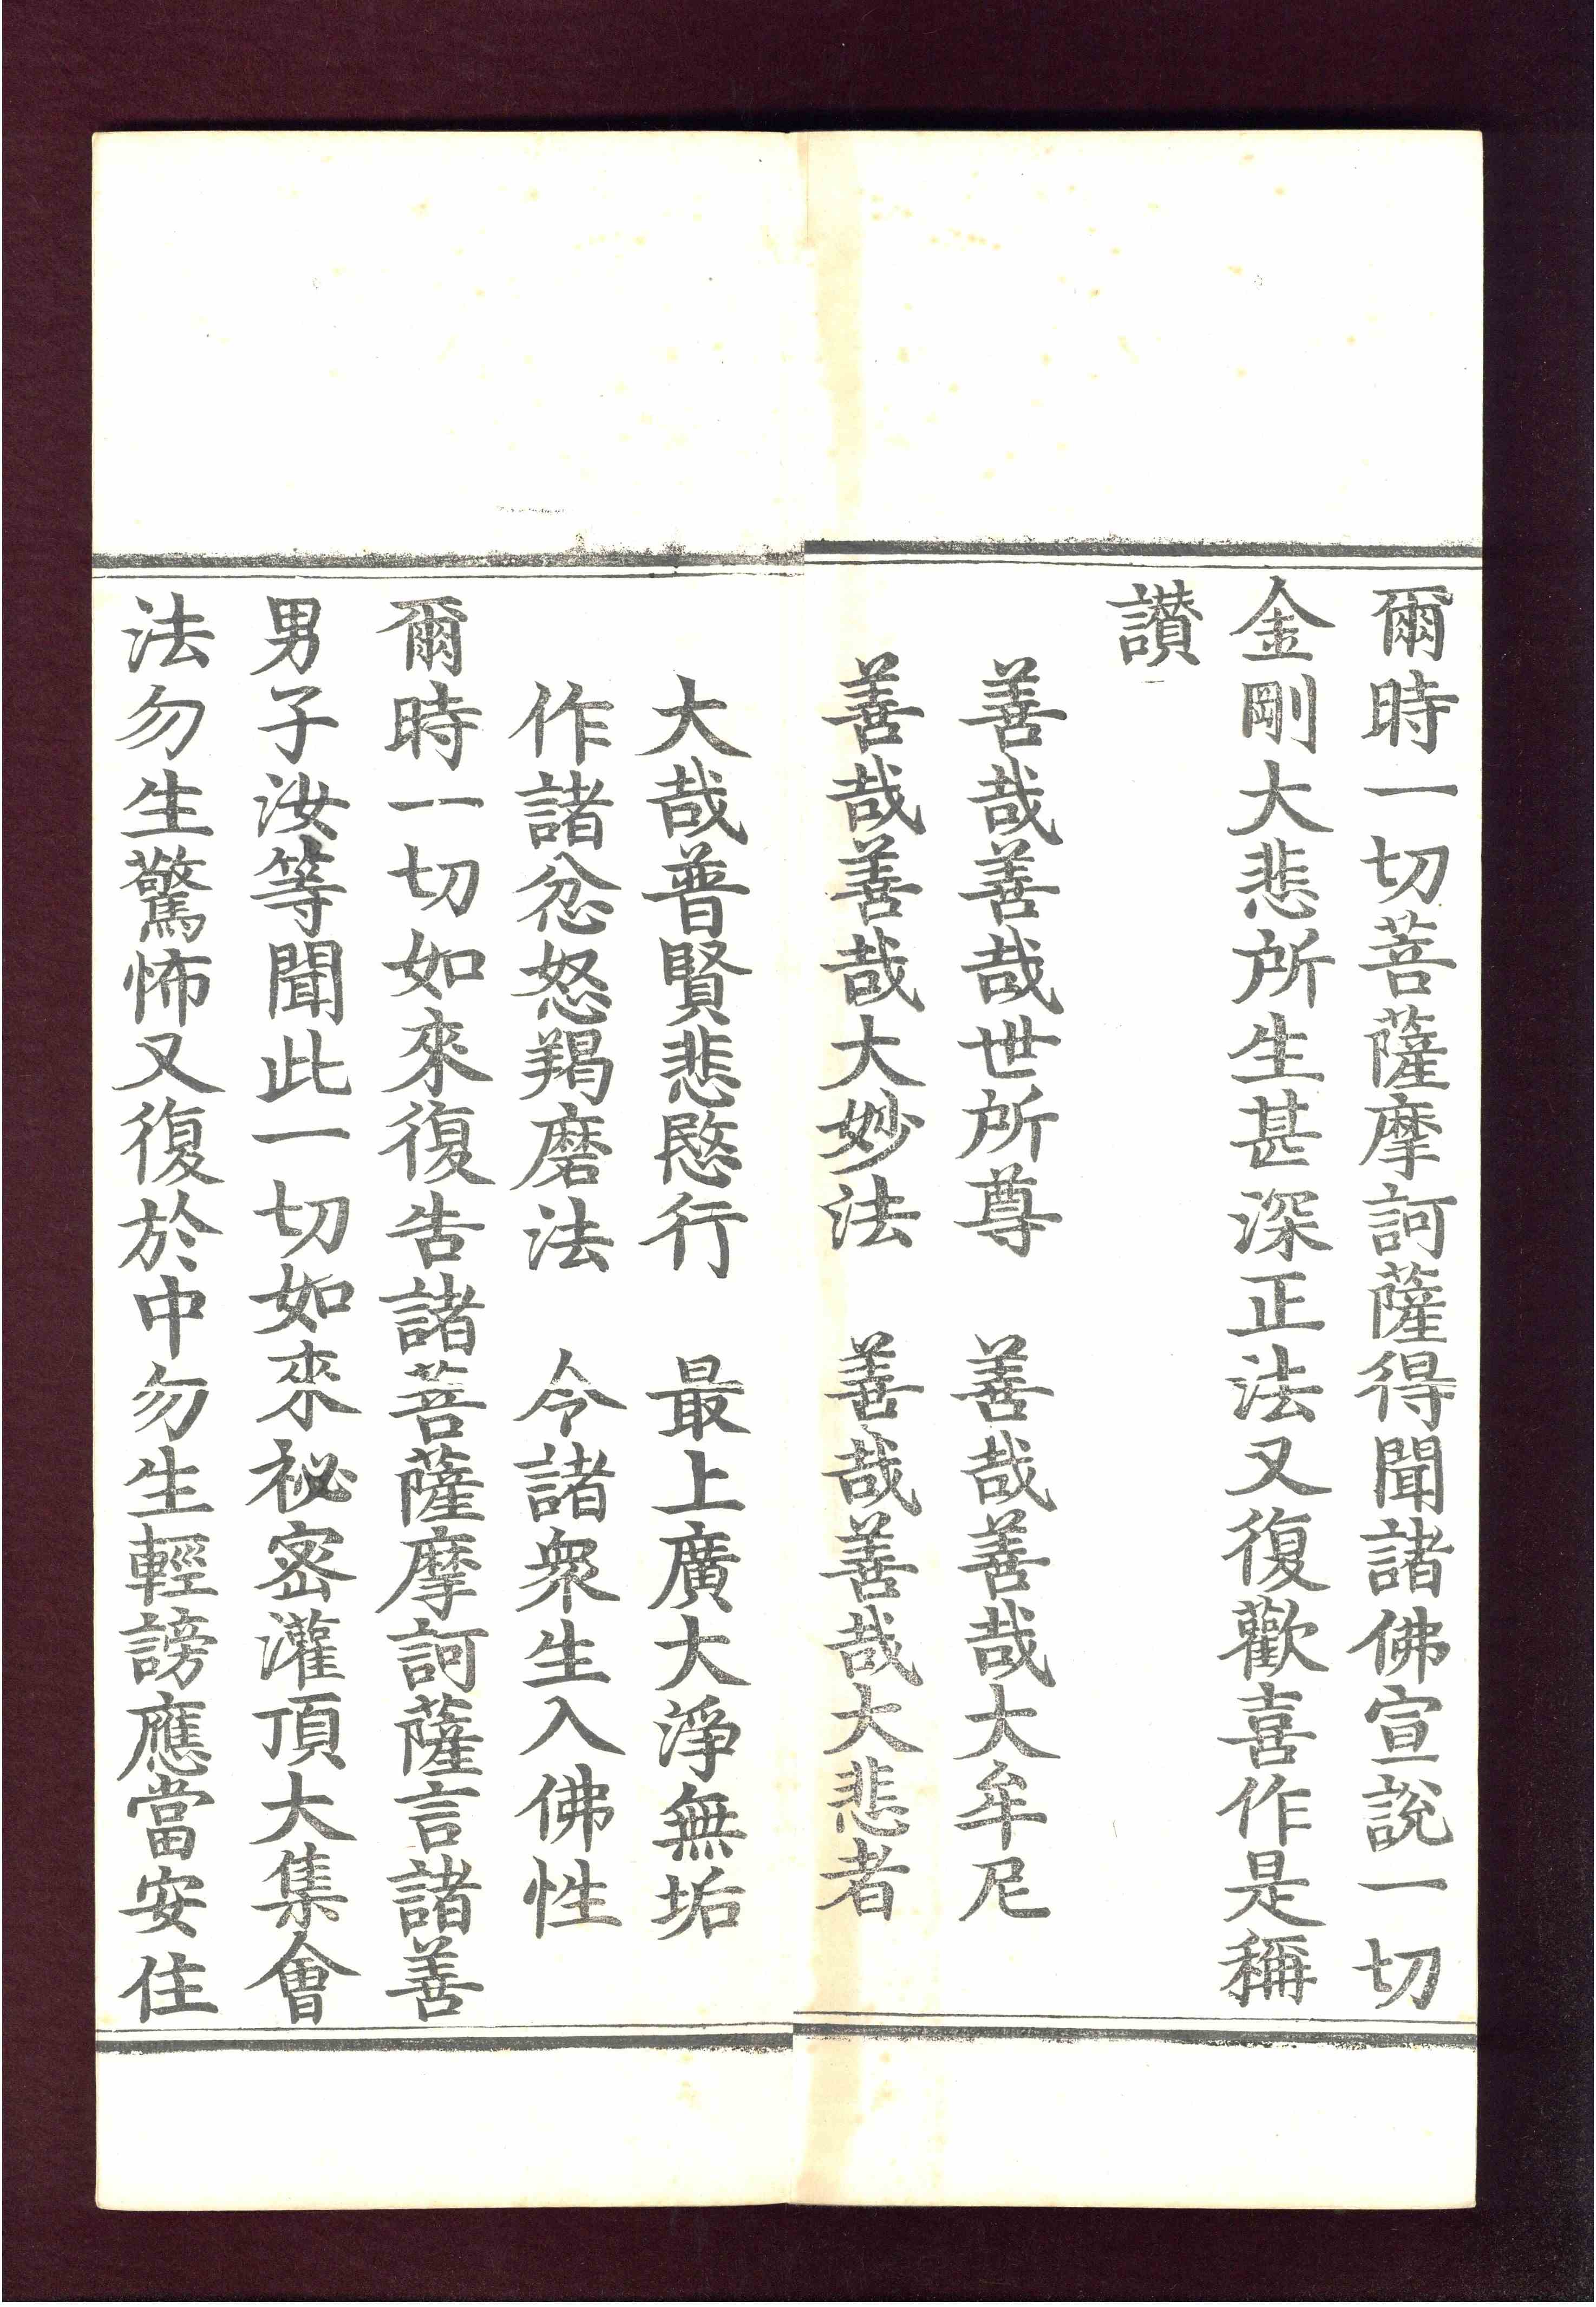 爾時一切菩薩摩訶薩得聞諸佛宣說一切
金剛大悲所生甚深正法又復歡喜作是稱
讚
善哉善哉世所尊　善哉善哉大牟尼
善哉善哉大妙法　善哉善哉大悲者
大哉普賢悲愍行　最上廣大淨無垢
作諸忿怒羯磨法　令諸衆生入佛性
爾時一切如來復告諸菩薩摩訶薩言諸善
男子汝等聞此一切如來祕密灌頂大集會
法勿生驚怖又復於中勿生輕謗應當安住